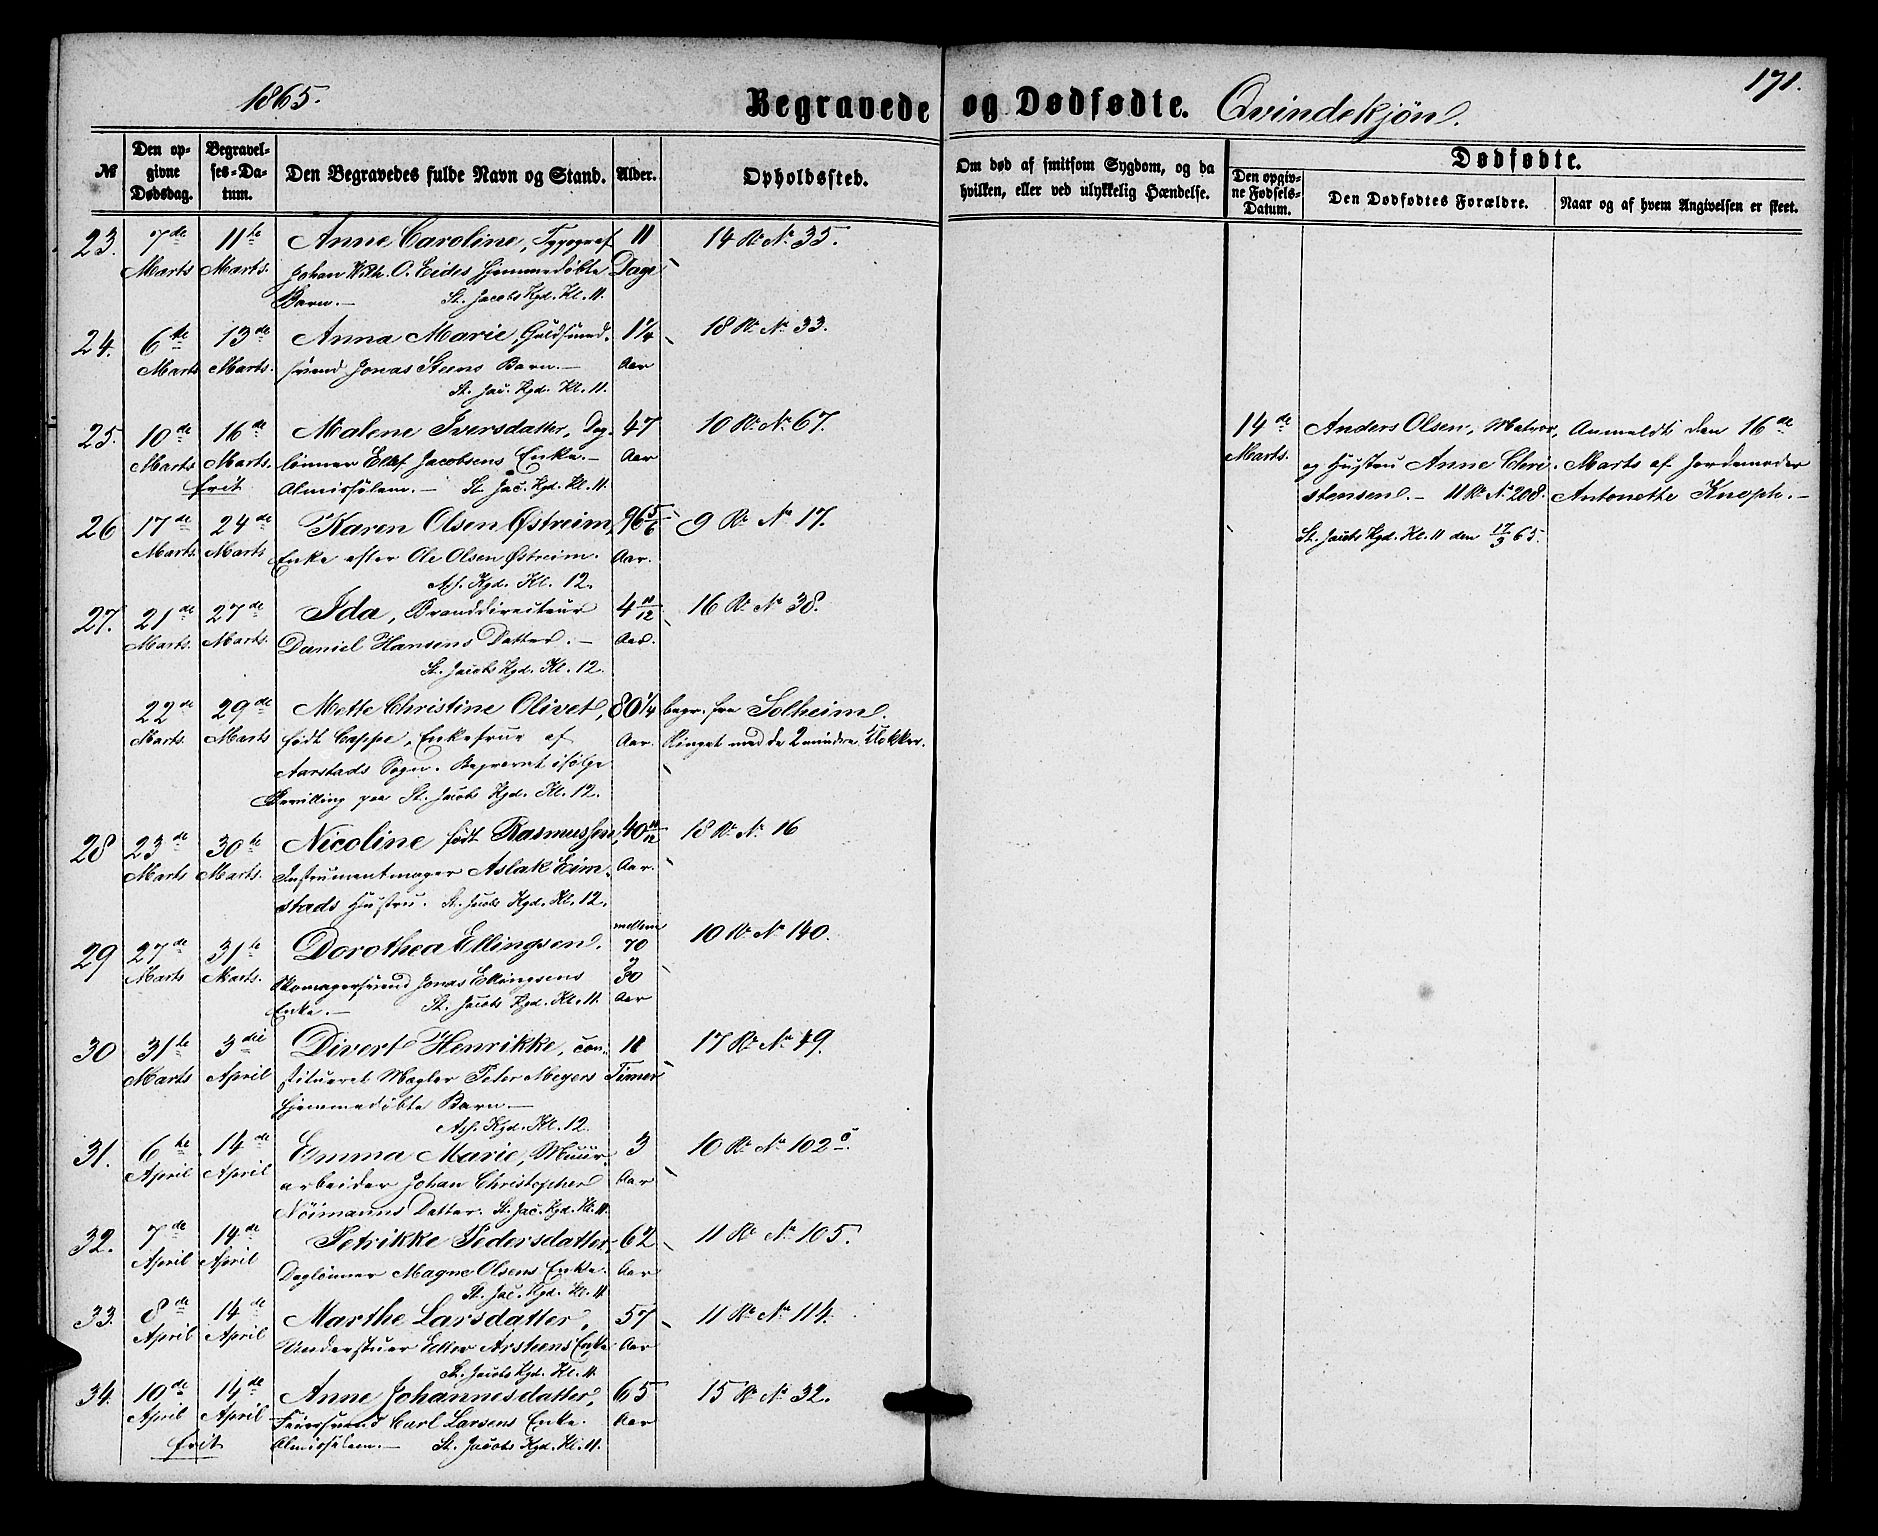 1865.
Begravede og Dødfødte. Qvindekjøn.
171.
№
Den opgivne Dødsdag.
Begravelses-Datum.
Den Begravedes fulde Navn og Stand.
Alder.
Opholdssted.
Om død af smitsom Sygdom, og da hvilken, eller ved ulykkelig Hændelse.
Dødfødte.
Den opgivne Fødsels-Datum.
Den Dødfødtes Forældre.
Naar og af hvem Angivelsen er skeet.
23. 7de 11te Anne Caroline, Typograf 11 14 R. No 35.
Marts Marts. Johan Wilh. O. Eides hjemmedøbte Dage
Barn.— St. Jacobs Kgd. Kl. 11.
24. 6te 13de Anna Marie, Guldsmed- 1¼ 18 R. No 33.
Marts Marts. svend Jonas Steens Barn.— Aar
St. Jac. Kgd. Kl. 11.
25. 10de 16de Malene Iversdatter, Dag- 47 10 R. No 67. 14de Anders Olsen, Matros, Anmeldt den 16de
Marts Marts. lønner Ellef Jacobsens Enke.— Aar Marts. og Hustru Anne Chri- Marts af Jordemoder
frit Almisselem.— St. Jac. Kgd. Kl. 11. stensen.— 11 R. No 208. Antonette Knoph.—
26 17de 24de Karen Olsen Østreim, 96 5/6 9 R. No 17. St. Jacobs Kgd. Kl. 11 den 17/3 65.
Marts. Marts Enke efter Ole Olsen Østreim. Aar.
Ass. Kgd. Kl. 12.
27. 21de 27de Ida, Branddirecteur 4 10/12 16 R. No 38.
Marts. Marts. Daniel Hansens Datter.— Aar.
St. Jacobs Kgd. Kl. 12.
22de 29de Mette Christine Olivet, 80¼ begr. fra Solheim.
Marts. Marts født Coppe, Enkefrue af Aar. Ringet med de 2 mindre Klokker.
Aarstads Sogn. Begravet ifølge
Bevilling paa St. Jacobs Kgd. Kl. 12.
28 23de 30te Nicoline født Rasmussen, 40 10/12 18 R. No 16
Marts Marts. Instrumentmager Aslak Eim- Aar.
stads Hustru. St. Jacobs Kgd. Kl. 12.
29 27de 31te Dorothea Ellingsen, mellem 70 10 R. No 140.
Marts Marts. Skomagersvend Jonas Ellingsens 80
Enke.— St. Jacobs Kgd. Kl. 11. Aar
30 31te 3die Divert Henrikke, con- 11 17 R. No 49.
Marts April stitueret Mægler Peter Meyers Timer
hjemmedøbte Barn.—
Ass. Kgd. Kl. 12.
31. 6te 14de Emma Marie, Muur- 3 10 R. No 102 c.
April April arbeider Johan Christopher Aar
Nöimanns Datter. St. Jac. Kgd. Kl. 11.
32. 7de 14de Petrikke Pedersdatter, 62 11 R. No 105.
April April Daglønner Magne Olsens Enke. Aar
St. Jac. Kgd. Kl. 11
33. 8de 14de Marthe Larsdatter, 57 11 R. No 114.
April April Enke Aar
St. Jacobs Kgd. Kl. 11.
34. 10de 14de Anne Johannesdatter, 65 15 R. No 32.
April April Feiersvend Carl Larsens Enke. Aar
frit Almisselem.— St. Jacobs Kgd. Kl. 11.